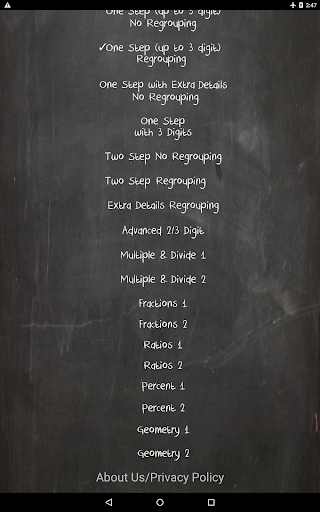 2:47
One Step (up to 3 digit)
No Regrouping
✓One Step (up to 3 digit)
Regrouping
One Step with Extra Details
No Regrouping
One Step
with 3 Digits
Two Step No Regrouping
Two Step Regrouping
Extra Details Regrouping
Advanced 2/3 Digit
Multiple & Divide 1
Multiple & Divide 2
Fractions 1
Fractions 2
Ratios 1
Ratios 2
Percent 1
Percent 2
Geometry 1
Geometry 2
About Us/Privacy Policy